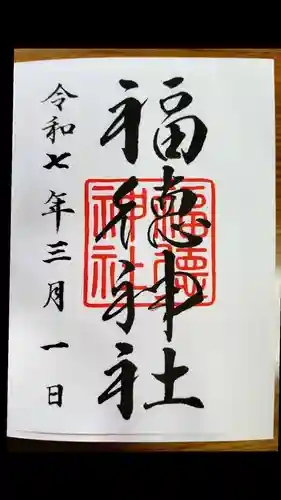 福徳神社
令和七年三月一日
福徳
神社